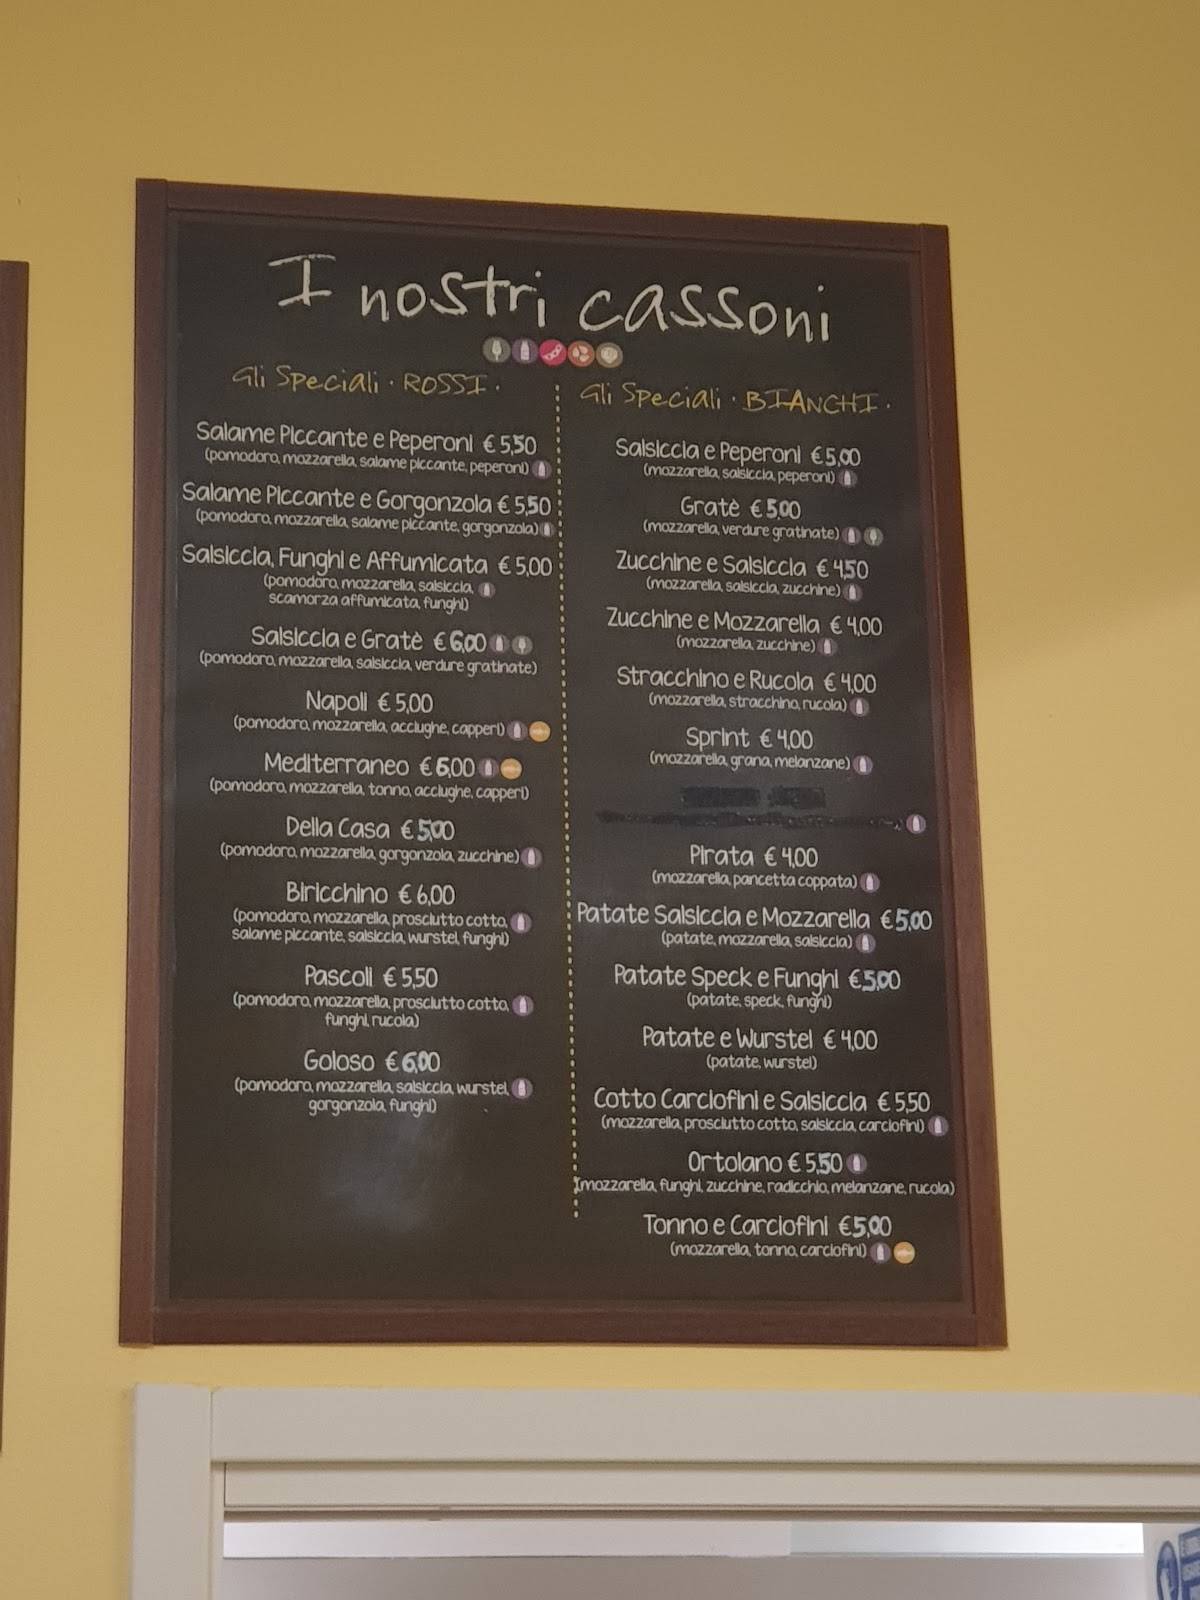 I nostri cassoni
Gli Speciali · ROSSI ·
Salame Piccante e Peperoni € 5,50
(pomodoro, mozzarella, salame piccante, peperoni)
Salame Piccante e Gorgonzola € 5,50
(pomodoro, mozzarella, salame piccante, gorgonzola)
Salsiccia, Funghi e Affumicata € 5,00
(pomodoro, mozzarella, salsiccia,
scamorza affumicata, funghi)
Salsiccia e Gratè € 6,00
(pomodoro, mozzarella, salsiccia, verdure gratinate)
Napoli € 5,00
(pomodoro, mozzarella, acciughe, capperi)
Mediterraneo € 6,00
(pomodoro, mozzarella, tonno, acciughe, capperi)
Della Casa € 5,00
(pomodoro, mozzarella, gorgonzola, zucchine)
Biricchino € 6,00
(pomodoro, mozzarella, prosciutto cotto,
salame piccante, salsiccia, wurstel, funghi)
Pascoli € 5,50
(pomodoro, mozzarella, prosciutto cotto,
funghi, rucola)
Goloso € 6,00
(pomodoro, mozzarella, salsiccia, wurstel,
gorgonzola, funghi)
Gli Speciali · BIANCHI ·
Salsiccia e Peperoni € 5,00
(mozzarella, salsiccia, peperoni)
Gratè € 5,00
(mozzarella, verdure gratinate)
Zucchine e Salsiccia € 4,50
(mozzarella, salsiccia, zucchine)
Zucchine e Mozzarella € 4,00
(mozzarella, zucchine)
Stracchino e Rucola € 4,00
(mozzarella, stracchino, rucola)
Sprint € 4,00
(mozzarella, grana, melanzane)
Pirata € 4,00
(mozzarella, pancetta coppata)
Patate Salsiccia e Mozzarella € 5,00
(patate, mozzarella, salsiccia)
Patate Speck e Funghi € 5,00
(patate, speck, funghi)
Patate e Wurstel € 4,00
(patate, wurstel)
Cotto Carciofini e Salsiccia € 5,50
(mozzarella, prosciutto cotto, salsiccia, carciofini)
Ortolano € 5,50
(mozzarella, funghi, zucchine, radicchio, melanzane, rucola)
Tonno e Carciofini € 5,00
(mozzarella, tonno, carciofini)